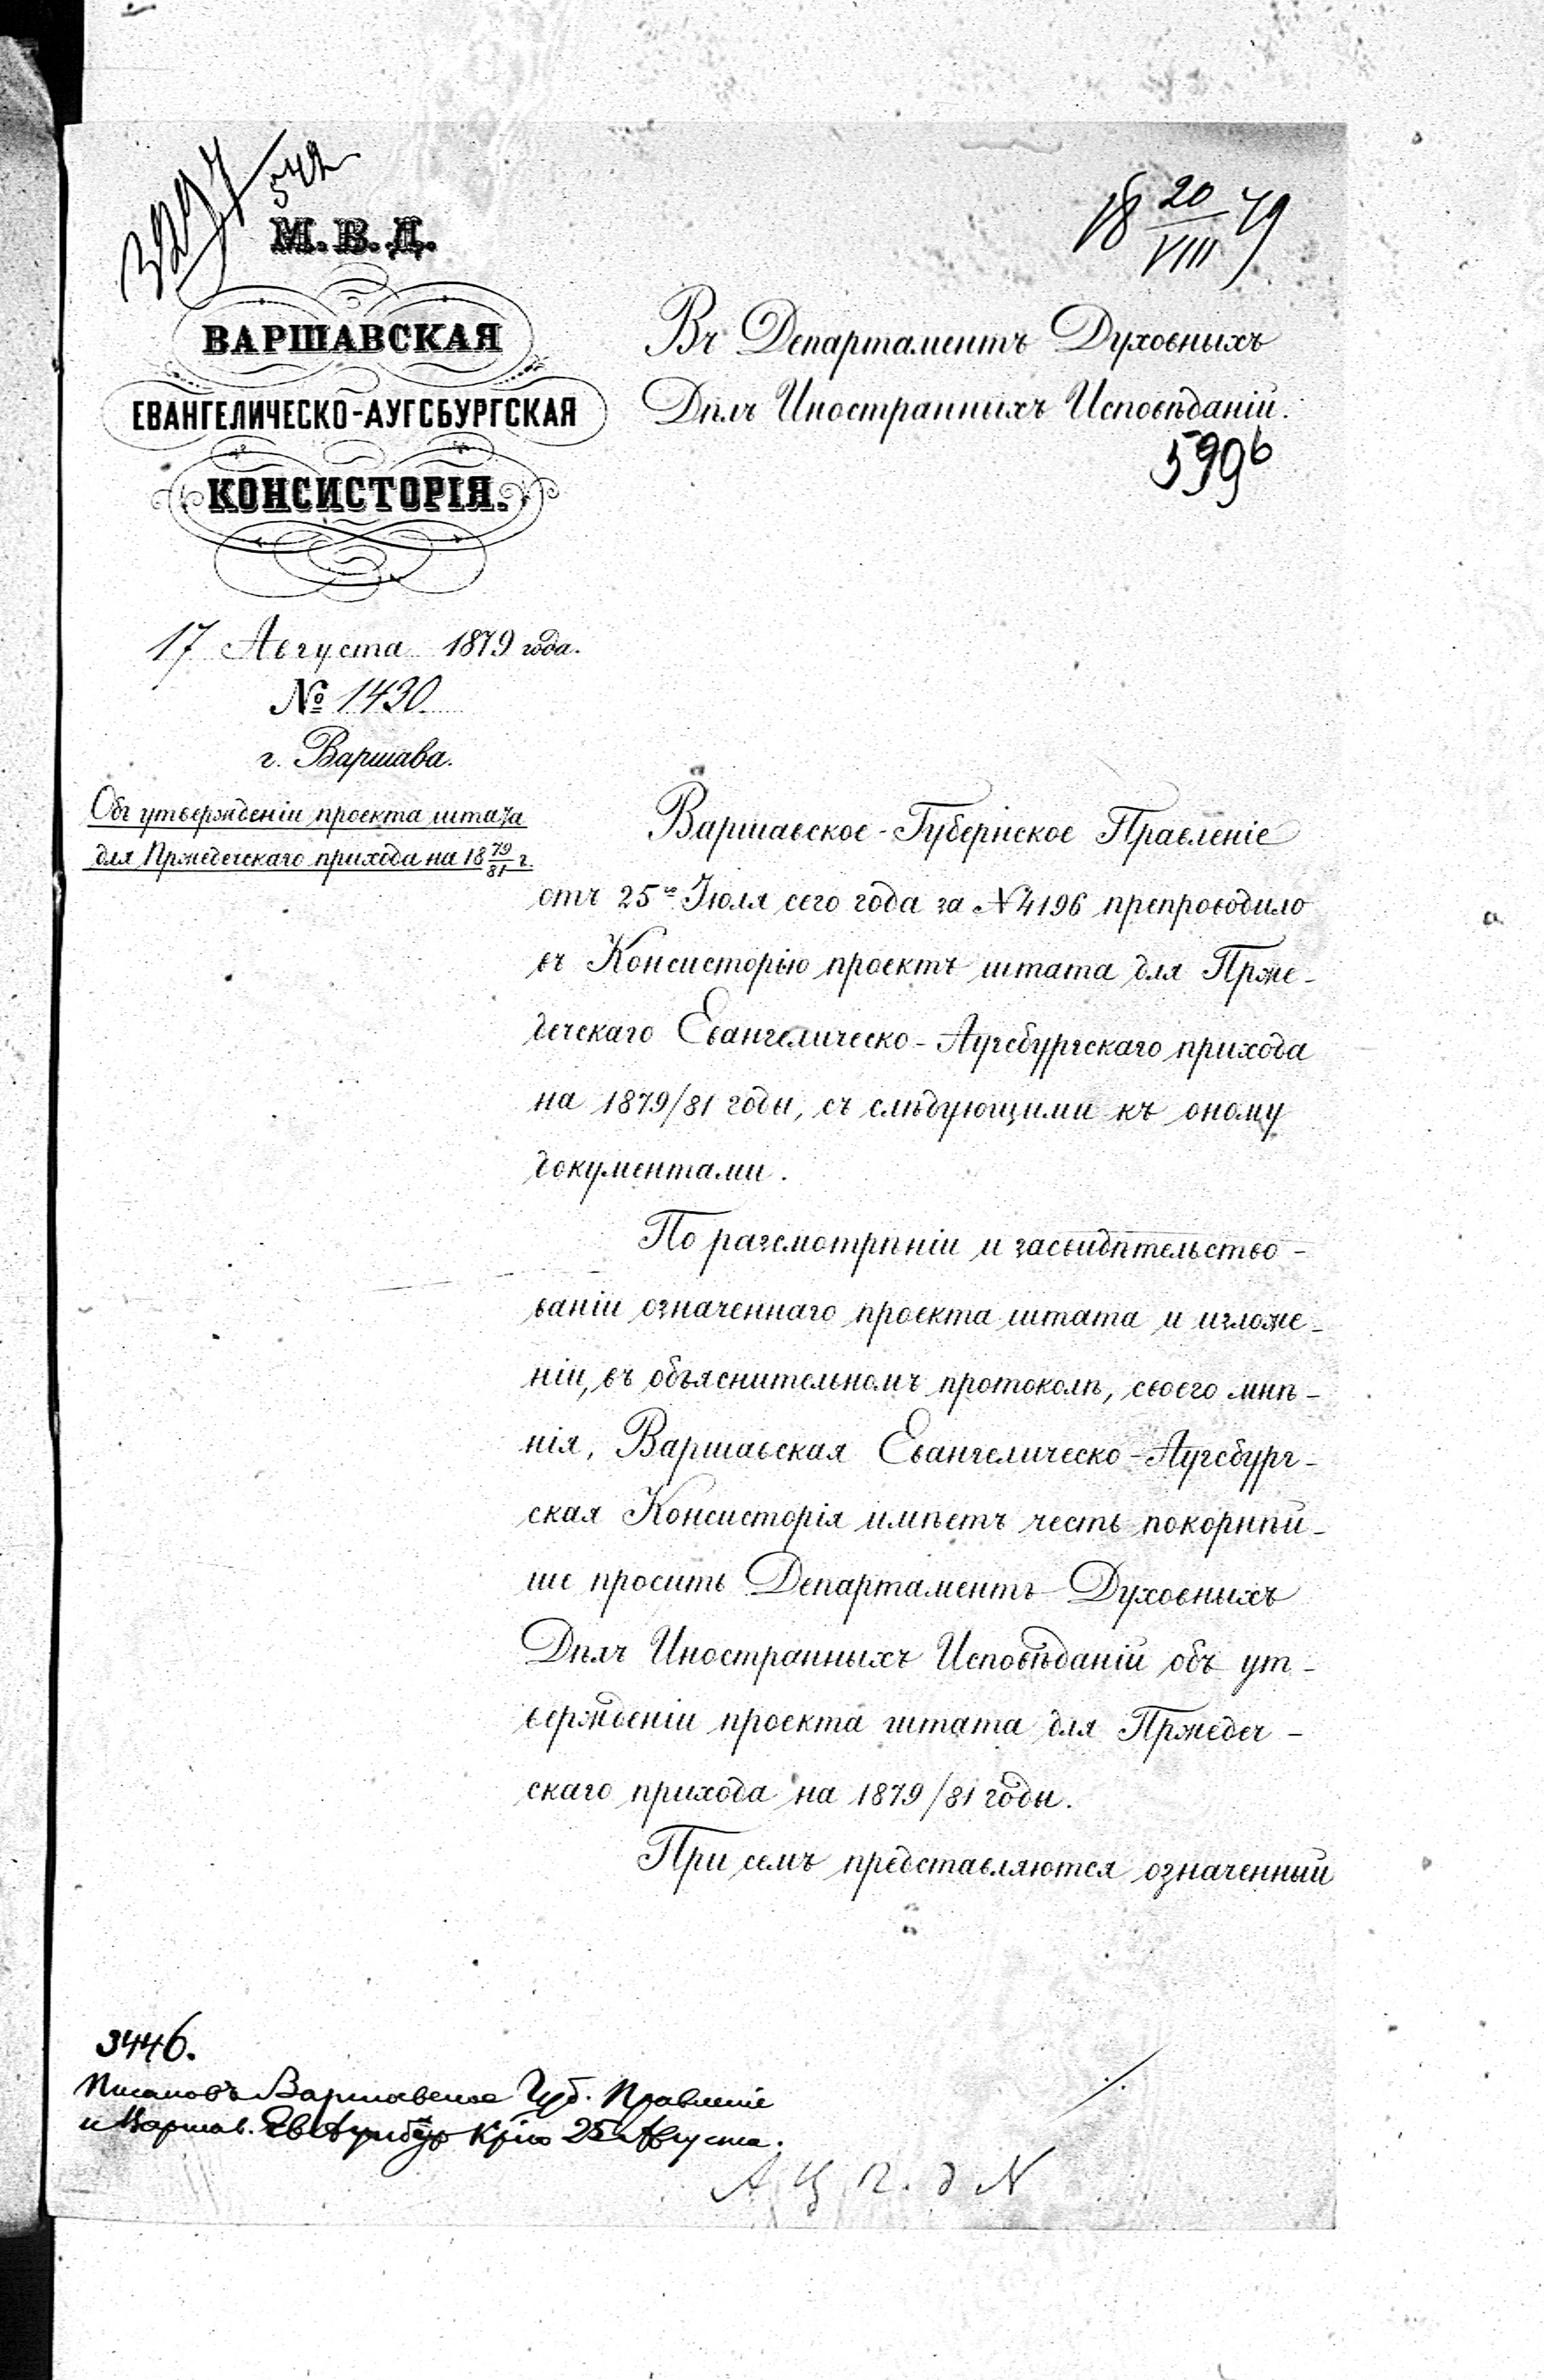 3297/542
М. В. Д.
ВАРШАВСКАЯ
ЕВАНГЕЛИЧЕСКО-АУГСБУРГСКАЯ
КОНСИСТОРІЯ.
17 Августа 1879 года.
№ 1430.
г. Варшава.
Объ утвержденіи проекта штата
для Пржедечскаго прихода на 18 79/81 г.
18 20/VIII 79
Въ Департаментъ Духовныхъ
Дѣлъ Иностранныхъ Исповѣданій.
Варшавское Губернское Правленіе
отъ 25го Іюля сего года за N 4196 препроводило
въ Консисторію проектъ штата для Прже-
дечскаго Евангелическо-Аугсбургскаго прихода
на 1879/81 годы, съ слѣдующими къ оному
документами.
По разсмотрѣніи и засвидѣтельство-
ваніи означеннаго проекта штата и изложе-
ніи, въ объяснительномъ протоколѣ, своего мнѣ-
нія, Варшавская Евангелическо-Аугсбург-
ская Консисторія имѣетъ честь покорнѣй-
ше просить Департаментъ Духовныхъ
Дѣлъ Иностранныхъ Исповѣданій объ ут-
вержденіи проекта штата для Пржедеч-
скаго прихода на 1879/81 годы.
При семъ представляются означенный
3446.
Варшавское Губ. Правленіе
и Варшав. 25 Августа.